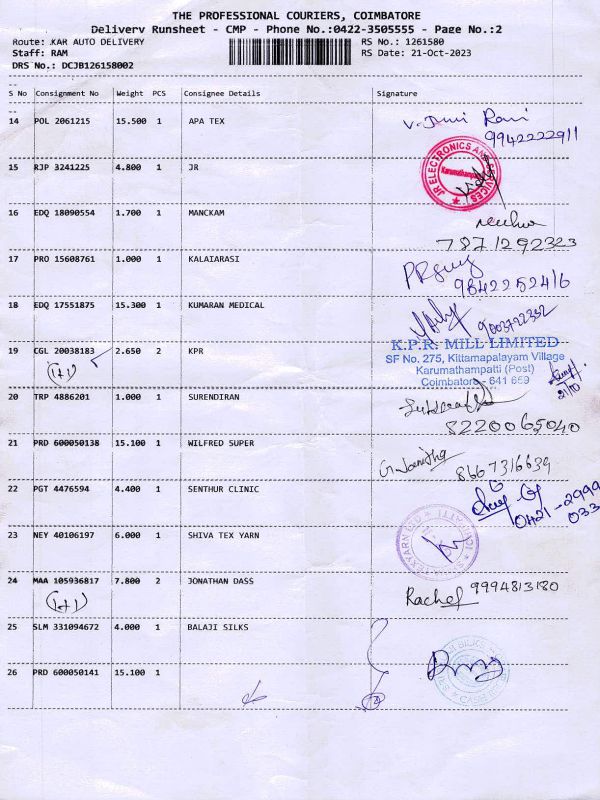 THE PROFESSIONAL COURIERS, COIMBATORE
Delivery Runsheet - CMP - Phone No.:0422-3505555 - Page No.:2
Route: KAR AUTO DELIVERY RS No.: 1261580
Staff: RAM RS Date: 21-Oct-2023
DRS No.: DCJB126158002
S No Consignment No Weight PCS Consignee Details Signature
14 POL 2061215 15.500 1 APA TEX
Rani
9942222911
15 RJP 3241225 4.800 1 JR
JR ELECTRONICS AND SERVICES
Karumathampatti
16 EDQ 18090554 1.700 1 MANCKAM
7871292323
17 PRO 15608761 1.000 1 KALAIARASI
9842252416
18 EDQ 17551875 15.300 1 KUMARAN MEDICAL
9003722352
19 CGL 20038183 2.650 2 KPR
(1+1)
K.P.R. MILL LIMITED
SF No. 275, Kittamapalayam Village
Karumathampatti (Post)
Coimbatore - 641 659
21/10
20 TRP 4886201 1.000 1 SURENDIRAN
8220065040
21 PRD 600050138 15.100 1 WILFRED SUPER
8667316639
22 PGT 4476594 4.400 1 SENTHUR CLINIC
0421-2999
033
23 NEY 40106197 6.000 1 SHIVA TEX YARN
24 MAA 105936817 7.800 2 JONATHAN DASS
(1+1)
Rachel 9994813180
25 SLM 331094672 4.000 1 BALAJI SILKS
26 PRD 600050141 15.100 1